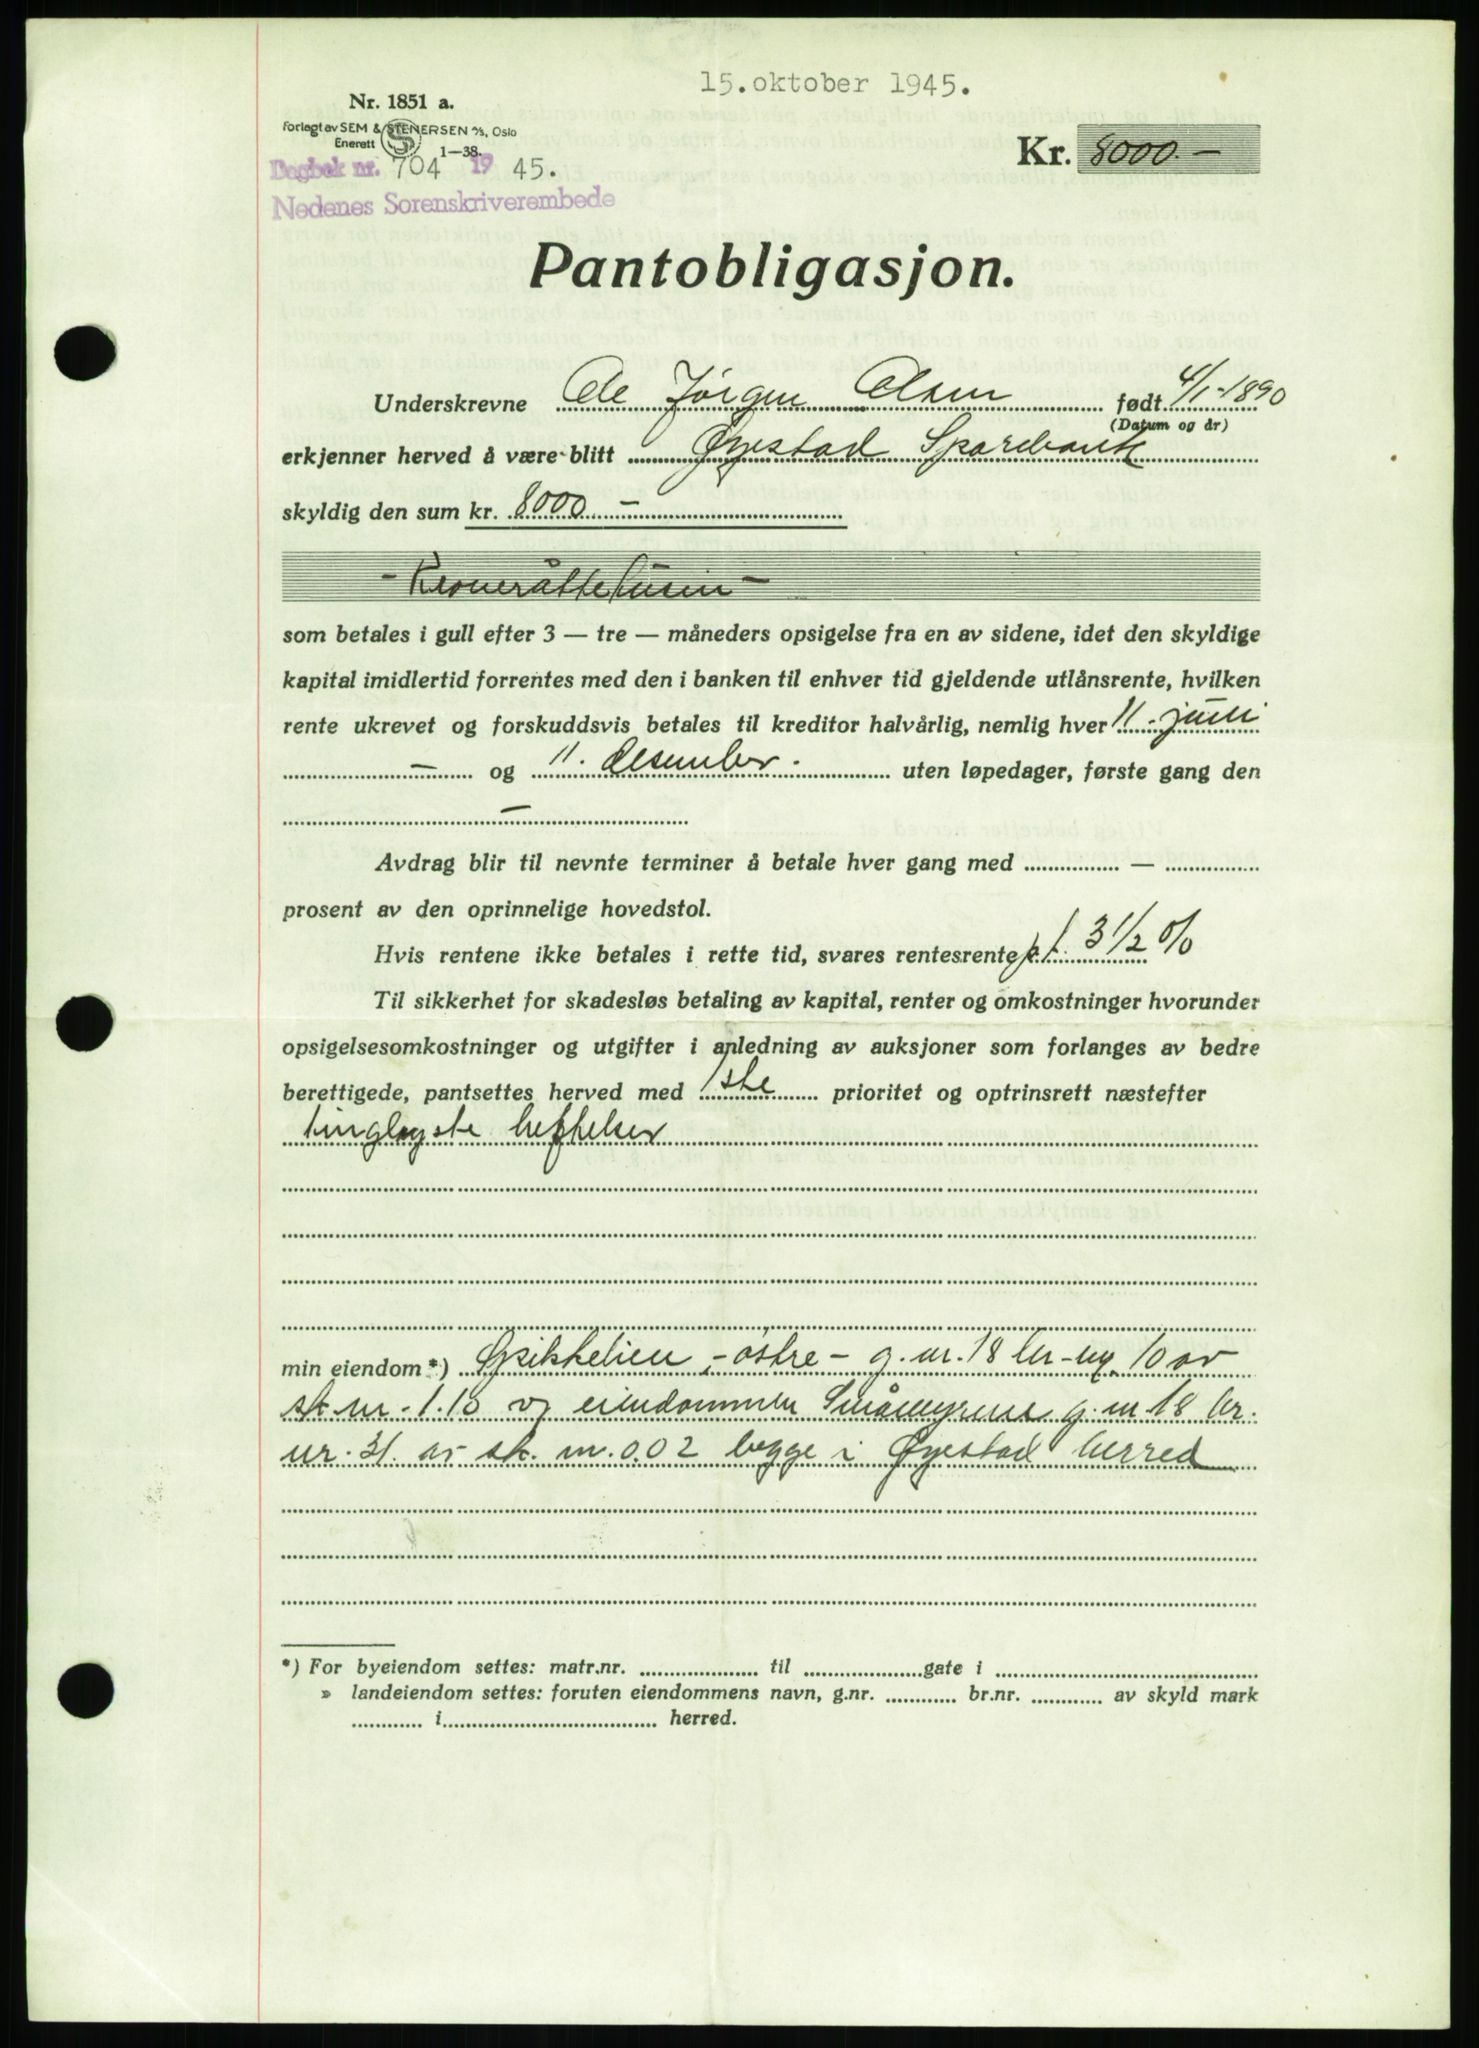 15. oktober 1945.
Nr. 1851 a.
Forlagt av SEM & STENERSEN A/S, Oslo
Enerett
1—38.
Kr. 8000.—
Dagbok nr. 704 19 45.
Nedenes Sorenskriverembede
Pantobligasjon.
Underskrevne Ole Jørgen Olsen født 4/1-1890
(Datum og år)
erkjenner herved å være blitt Øyestad Sparebank
skyldig den sum kr. 8000 —
- Kroneråttetusen -
som betales i gull efter 3 — tre — måneders opsigelse fra en av sidene, idet den skyldige
kapital imidlertid forrentes med den i banken til enhver tid gjeldende utlånsrente, hvilken
rente ukrevet og forskuddsvis betales til kreditor halvårlig, nemlig hver 11. juni
— og 11. desember. uten løpedager, første gang den
—
Avdrag blir til nevnte terminer å betale hver gang med — 
prosent av den oprinnelige hovedstol.
Hvis rentene ikke betales i rette tid, svares rentesrente p.t. 3 1/2 %
Til sikkerhet for skadesløs betaling av kapital, renter og omkostninger hvorunder
opsigelsesomkostninger og utgifter i anledning av auksjoner som forlanges av bedre
berettigede, pantsettes herved med 1ste prioritet og optrinsrett næstefter
tinglyste heftelser
min eiendom*) - østre - g. nr. 18 br. nr. 10 av
sk. nr. 1.15 og eiendommen Småmyrene g. nr. 18 br.
nr. 31. av sk. m. 0.02 begge i Øyestad herred
*) For byeiendom settes: matr.nr. ........ til ........ gate i ........
» landeiendom settes: foruten eiendommens navn, g.nr. ........ br.nr. ........ av skyld mark
........ i ........ herred.